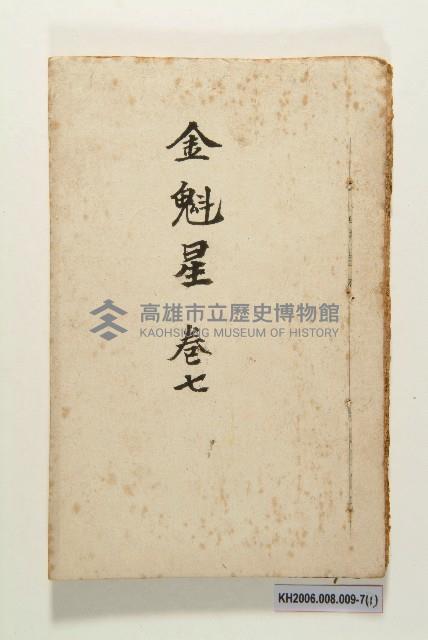 金魁星 卷七
高雄市立歷史博物館
KAOHSIUNG MUSEUM OF HISTORY
KH2006.008.009-7(1)